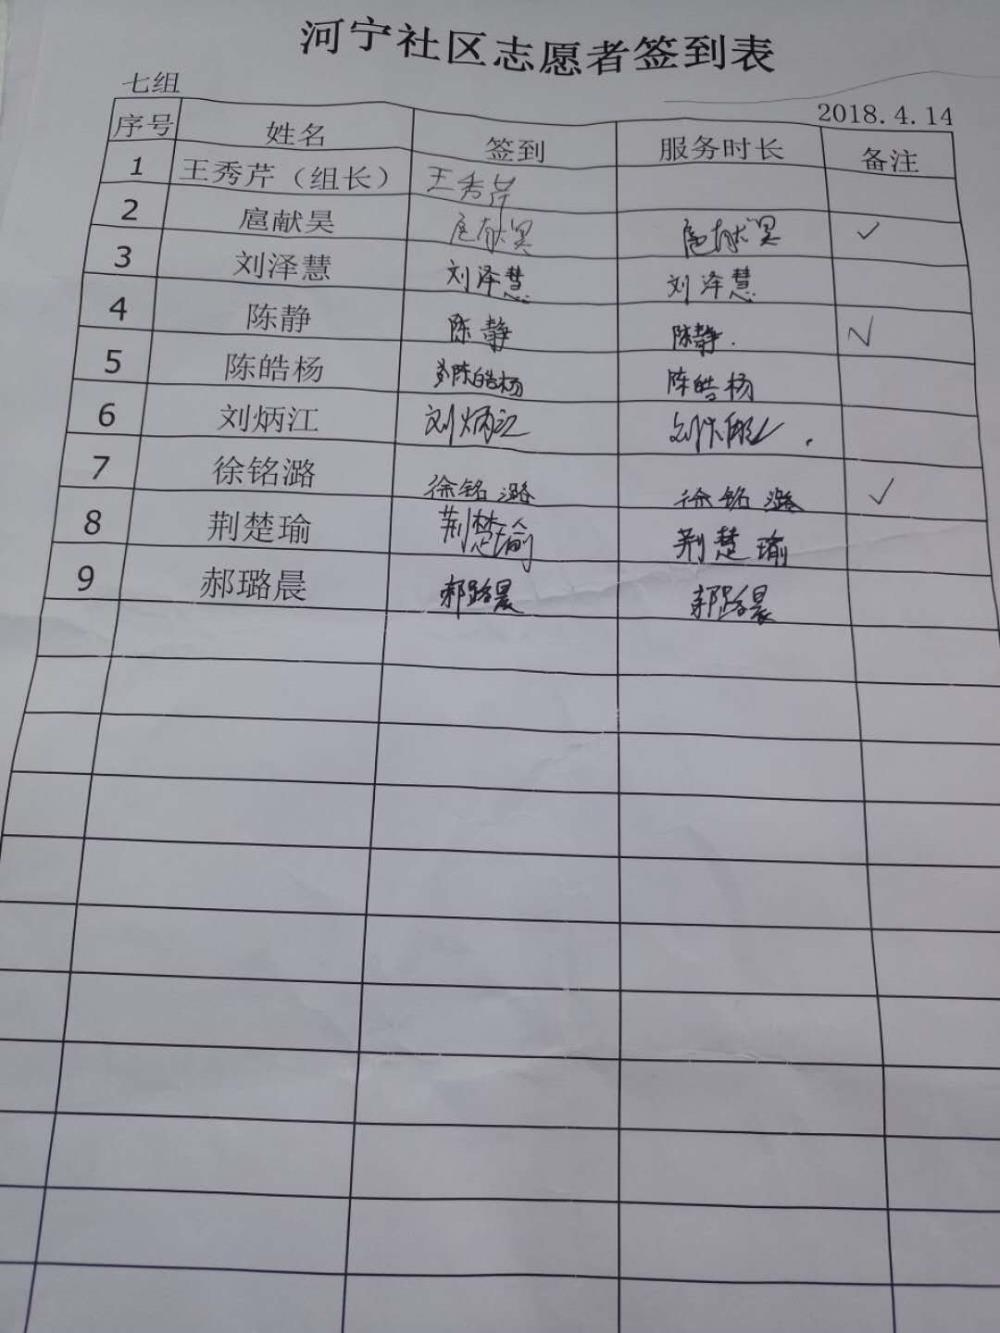 河宁社区志愿者签到表
七组
2018.4.14
序号 姓名 签到 服务时长 备注
1 王秀芹（组长） 王秀芹
2 扈献昊 扈献昊 扈献昊 ✓
3 刘泽慧 刘泽慧 刘泽慧
4 陈静 陈静 陈静. ✓
5 陈皓杨 陈皓杨 陈皓杨
6 刘炳江 刘炳江
7 徐铭潞 徐铭潞 徐铭潞 ✓
8 荆楚瑜 荆楚瑜 荆楚瑜
9 郝璐晨 郝璐晨 郝璐晨